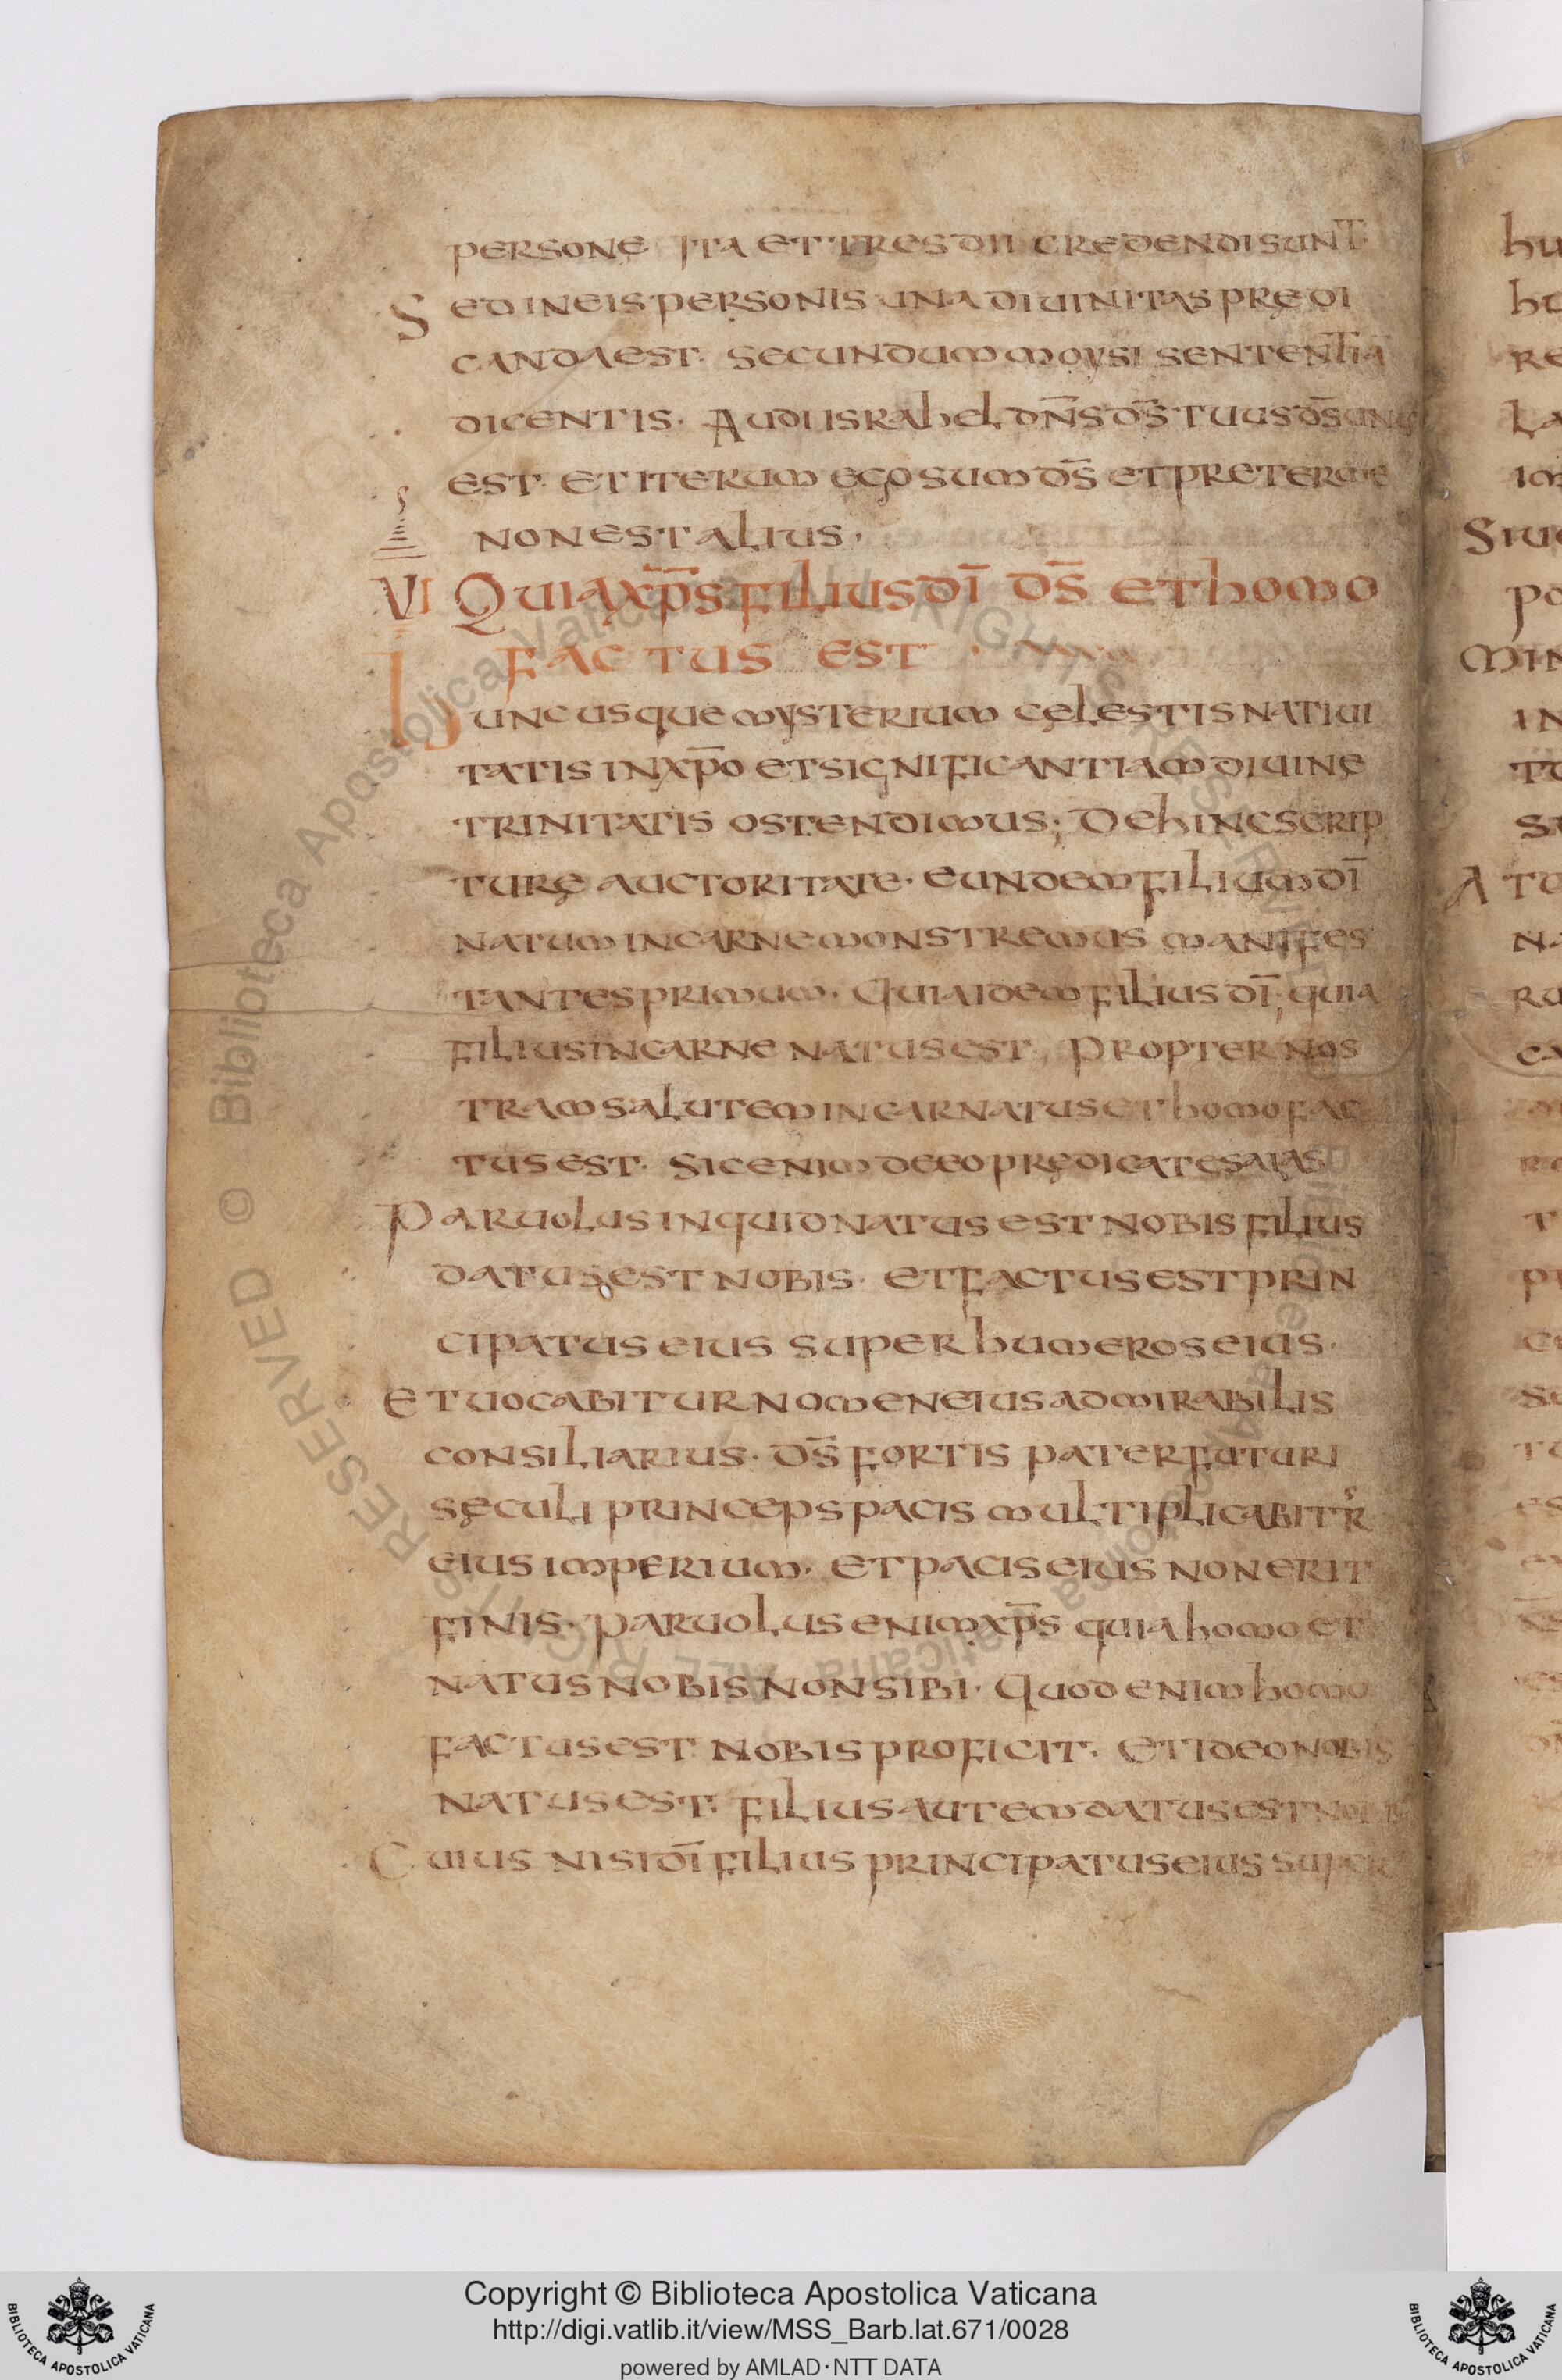 personę Ita et tres dii credendi sunt.
Sed in eis personis una diuinitas prędi
canda est. Secundum moysi sententiā
dicentis. Audi israhel dn̄s ds̄ tuus ds̄ unus
est. et iterum ego sum ds̄ et preter me
non est alius.
VI Quia xp̄s filius dī ds̄ et homo
factus est
Huncusque mysterium cęlestis natiui
tatis in xp̄o et significantiam diuinę
trinitatis ostendimus; Dehinc scrip
turę auctoritate. eundem filium dī
natum in carne monstremus manifes
tantes primum. Quia idem filius dī; quia
filius in carne natus est. Propter nos
tram salutem incarnatus et homo fac
tus est. Sic enim de eo prędicat esaias
Paruolus inquid natus est nobis filius
datus est nobis. et factus est prin
cipatus eius super humeros eius.
Et uocabitur nomen eius admirabilis
consiliarius. ds̄ fortis pater futuri
sęculi princeps pacis multiplicabitr̓
eius imperium. et pacis eius non erit
finis. paruolus enim xp̄s quia homo et
natus nobis non sibi. Quod enim homo
factus est nobis proficit. Et ideo nobis
natus est. filius autem datus est nobis
Cuius nisi dī filius principatus eius super
hu
re
La
im
Siu
po
min
in
S
A
na
ru
ca
© Biblioteca Apostolica Vaticana ALL RIGHTS RESERVED
© Biblioteca Apostolica Vaticana ALL RIGHTS RESERVED
Copyright © Biblioteca Apostolica Vaticana
http://digi.vatlib.it/view/MSS_Barb.lat.671/0028
powered by AMLAD·NTT DATA
BIBLIOTECA APOSTOLICA VATICANA
BIBLIOTECA APOSTOLICA VATICANA